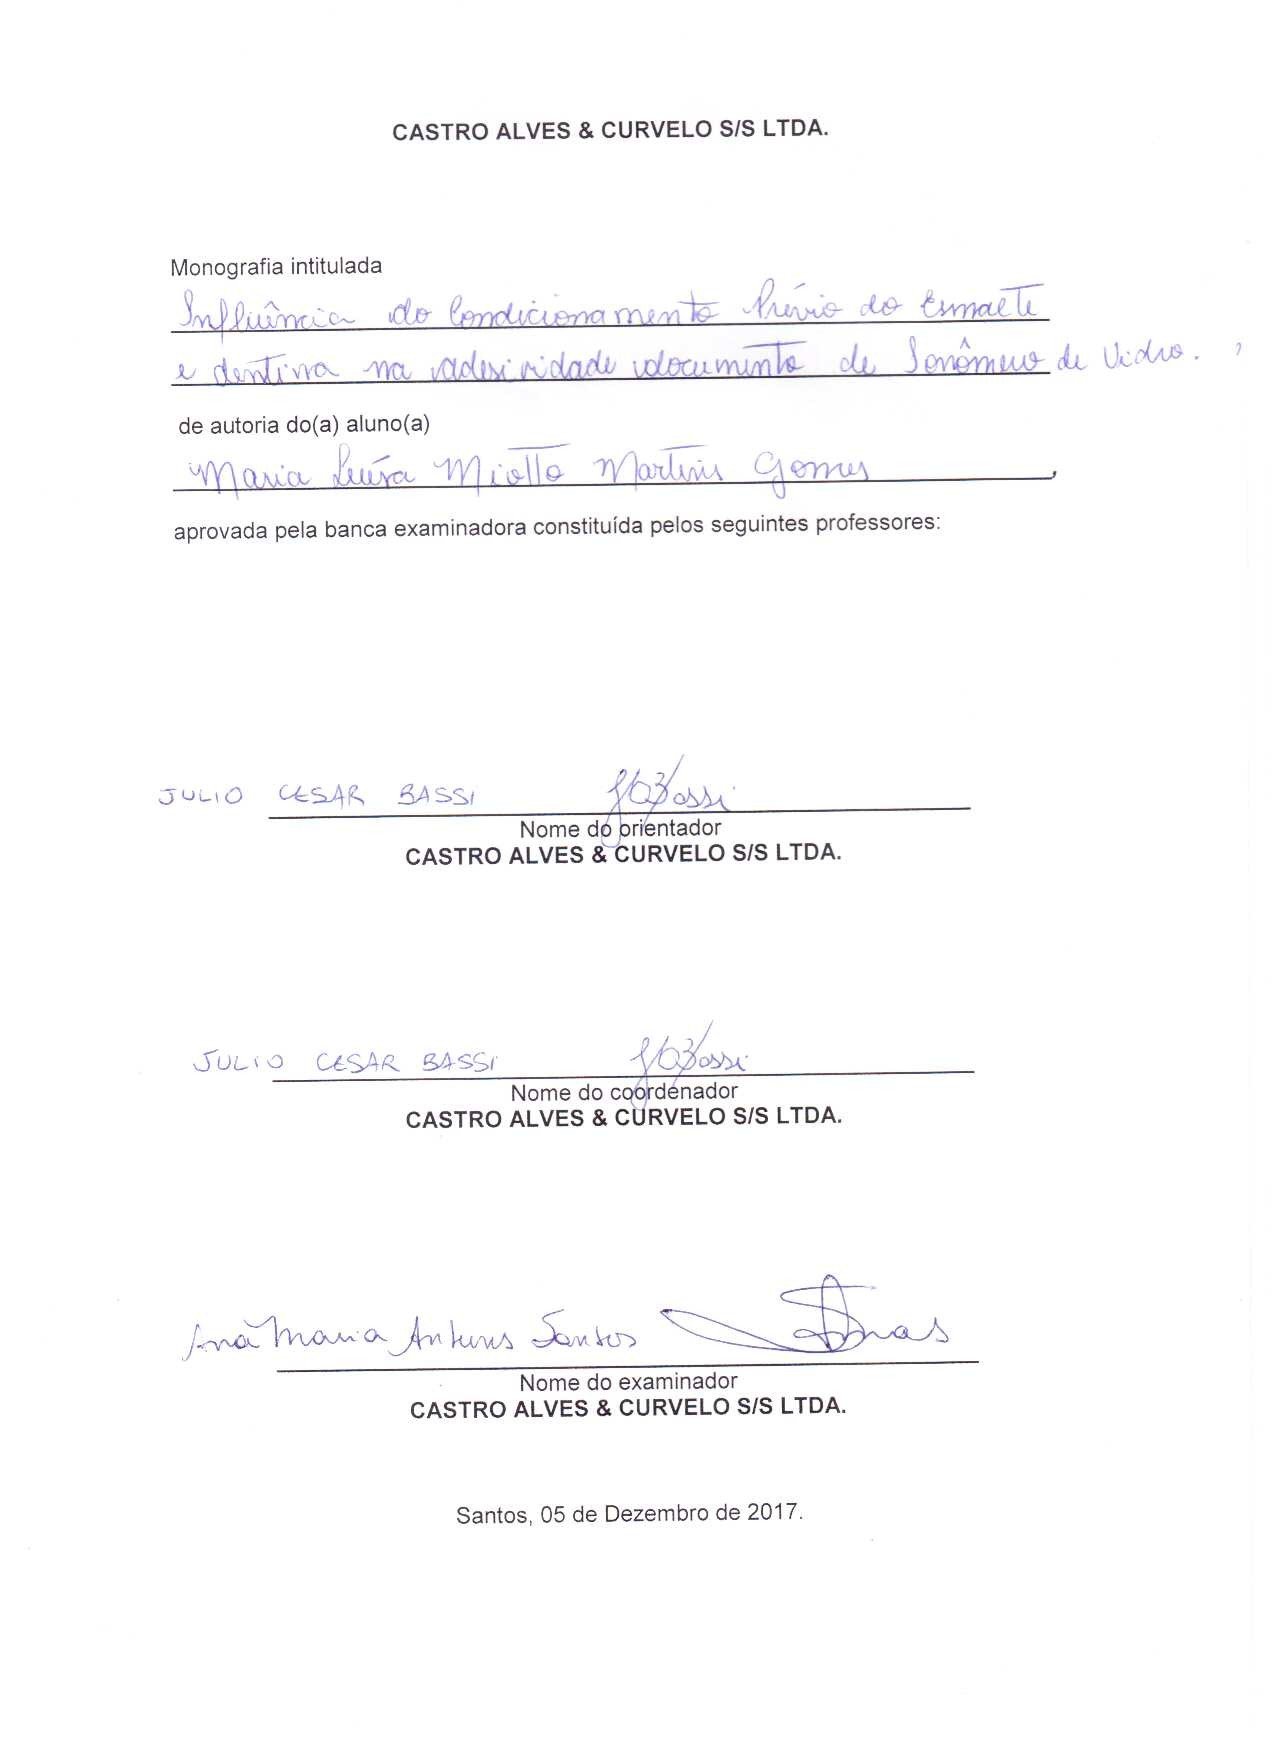 CASTRO ALVES & CURVELO S/S LTDA.
Monografia intitulada
Influência do Condicionamento Prévio do Esmalte
e dentina na adesividade docimento de Ionômero de Vidro. ,
de autoria do(a) aluno(a)
Maria Luísa Miotto Martins Gomes,
aprovada pela banca examinadora constituída pelos seguintes professores:
JULIO CESAR BASSI
Nome do orientador
CASTRO ALVES & CURVELO S/S LTDA.
JULIO CESAR BASSI
Nome do coordenador
CASTRO ALVES & CURVELO S/S LTDA.
Ana Maria Antunes Santos
Nome do examinador
CASTRO ALVES & CURVELO S/S LTDA.
Santos, 05 de Dezembro de 2017.